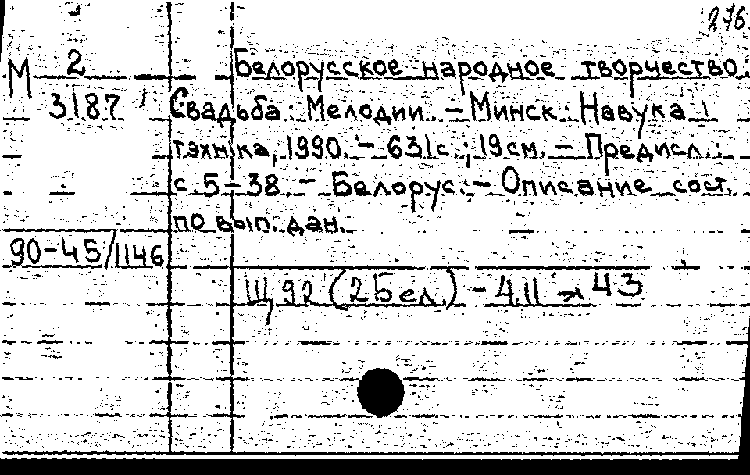 276
М 2
3187
Белорусское народное творчество:
Свадьба: Мелодии. - Минск: Навука i
тэхнiка, 1990. - 631с.; 19см. - Предисл.:
с 5-38. - Белорус. - Описание сост.
по вып. дан.
90-45/1146
Щ92(2Бел.) - 4.11 я 43